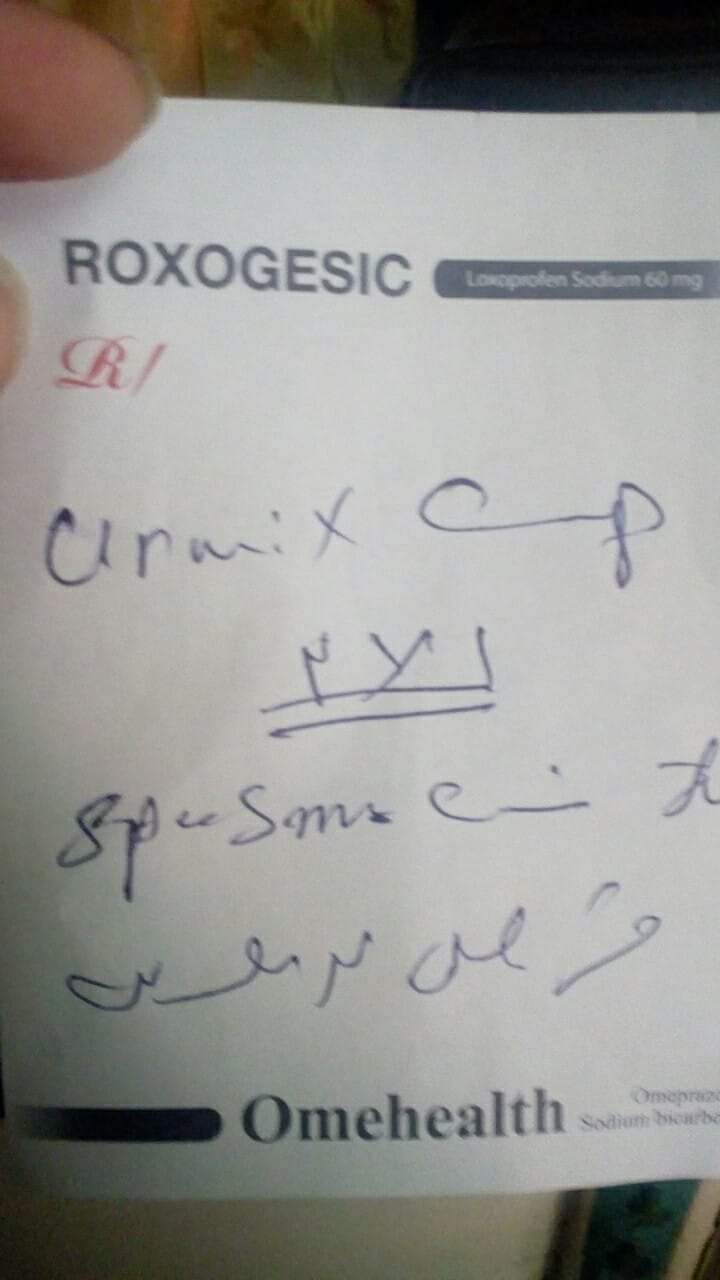 ROXOGESIC Loxoprofen Sodium 60 mg
R/
Urmix Cap
١x٢
Spasmocin
قرص
Omehealth Omepraz
Sodium bicarb